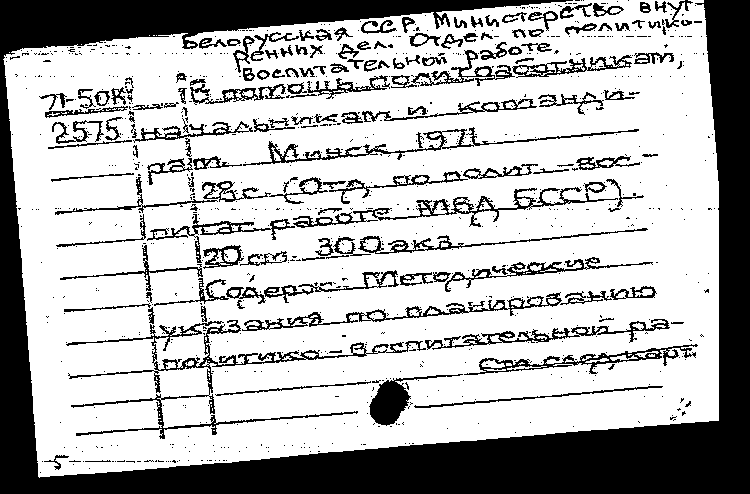 Белорусская ССР. Министерство внут-
ренних дел. Отдел по политико-
воспитательной работе.
71-50К В помощь политработникам,
2575 начальникам и команди-
рам. Минск, 1971.
28 с. (Отд. по полит.-вос-
питат. работе МВД БССР).
20 см. 300 экз.
Содерж.: Методические
указания по планированию
политико-воспитательной ра-
См. след. карт.
5